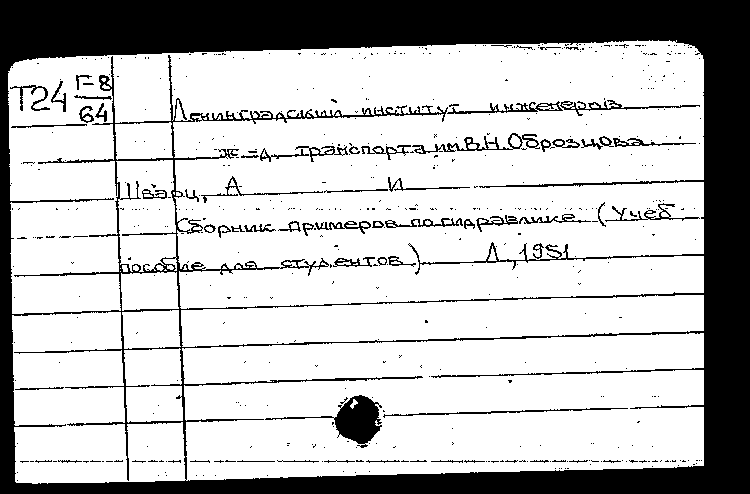 Т24 Г-8
64
Ленинградский институт инженеров
ж.-д. транспорта им. В.Н. Образцова.
Шварц, А И
Сборник примеров по гидравлике. (Учеб.
пособие для студентов). Л., 1951.